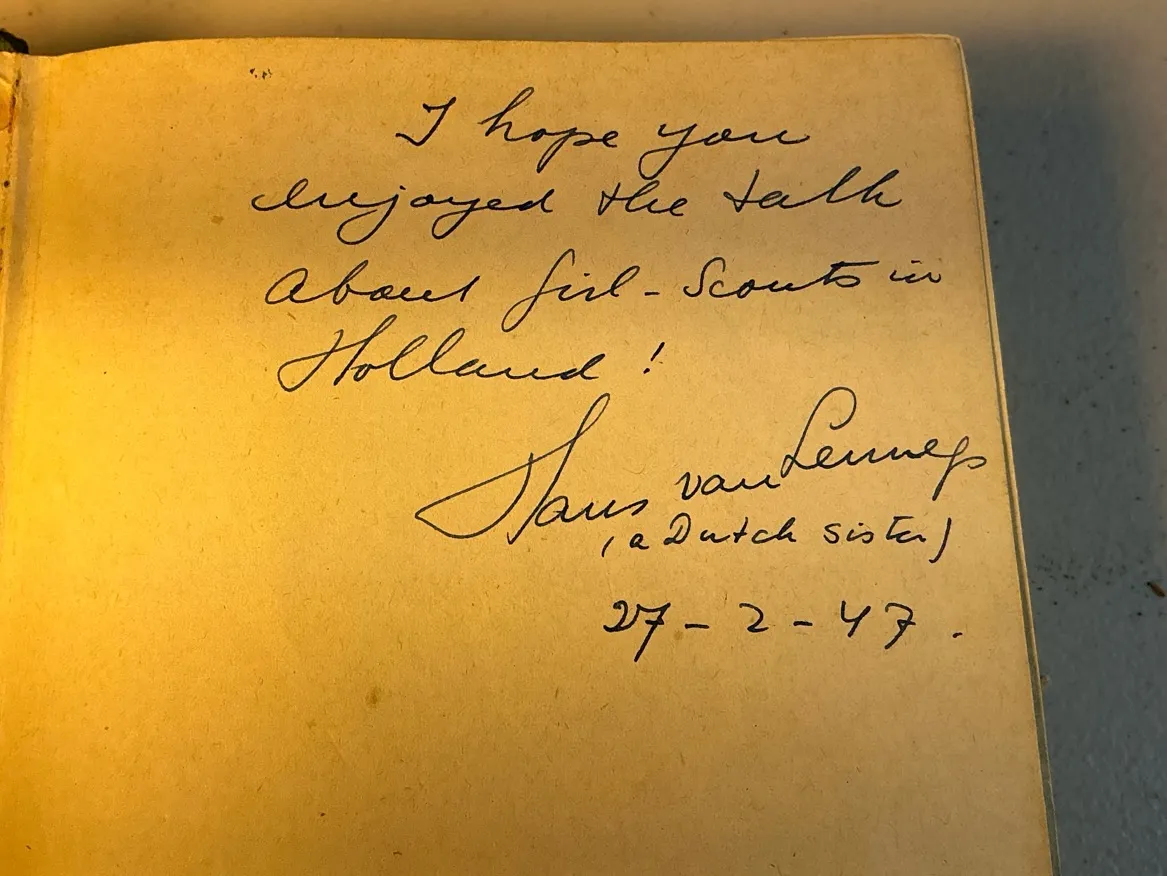 I hope you
enjoyed the talk
about Girl-Scouts in
Holland!
Hans van Lennep
(a Dutch sister)
27-2-47.